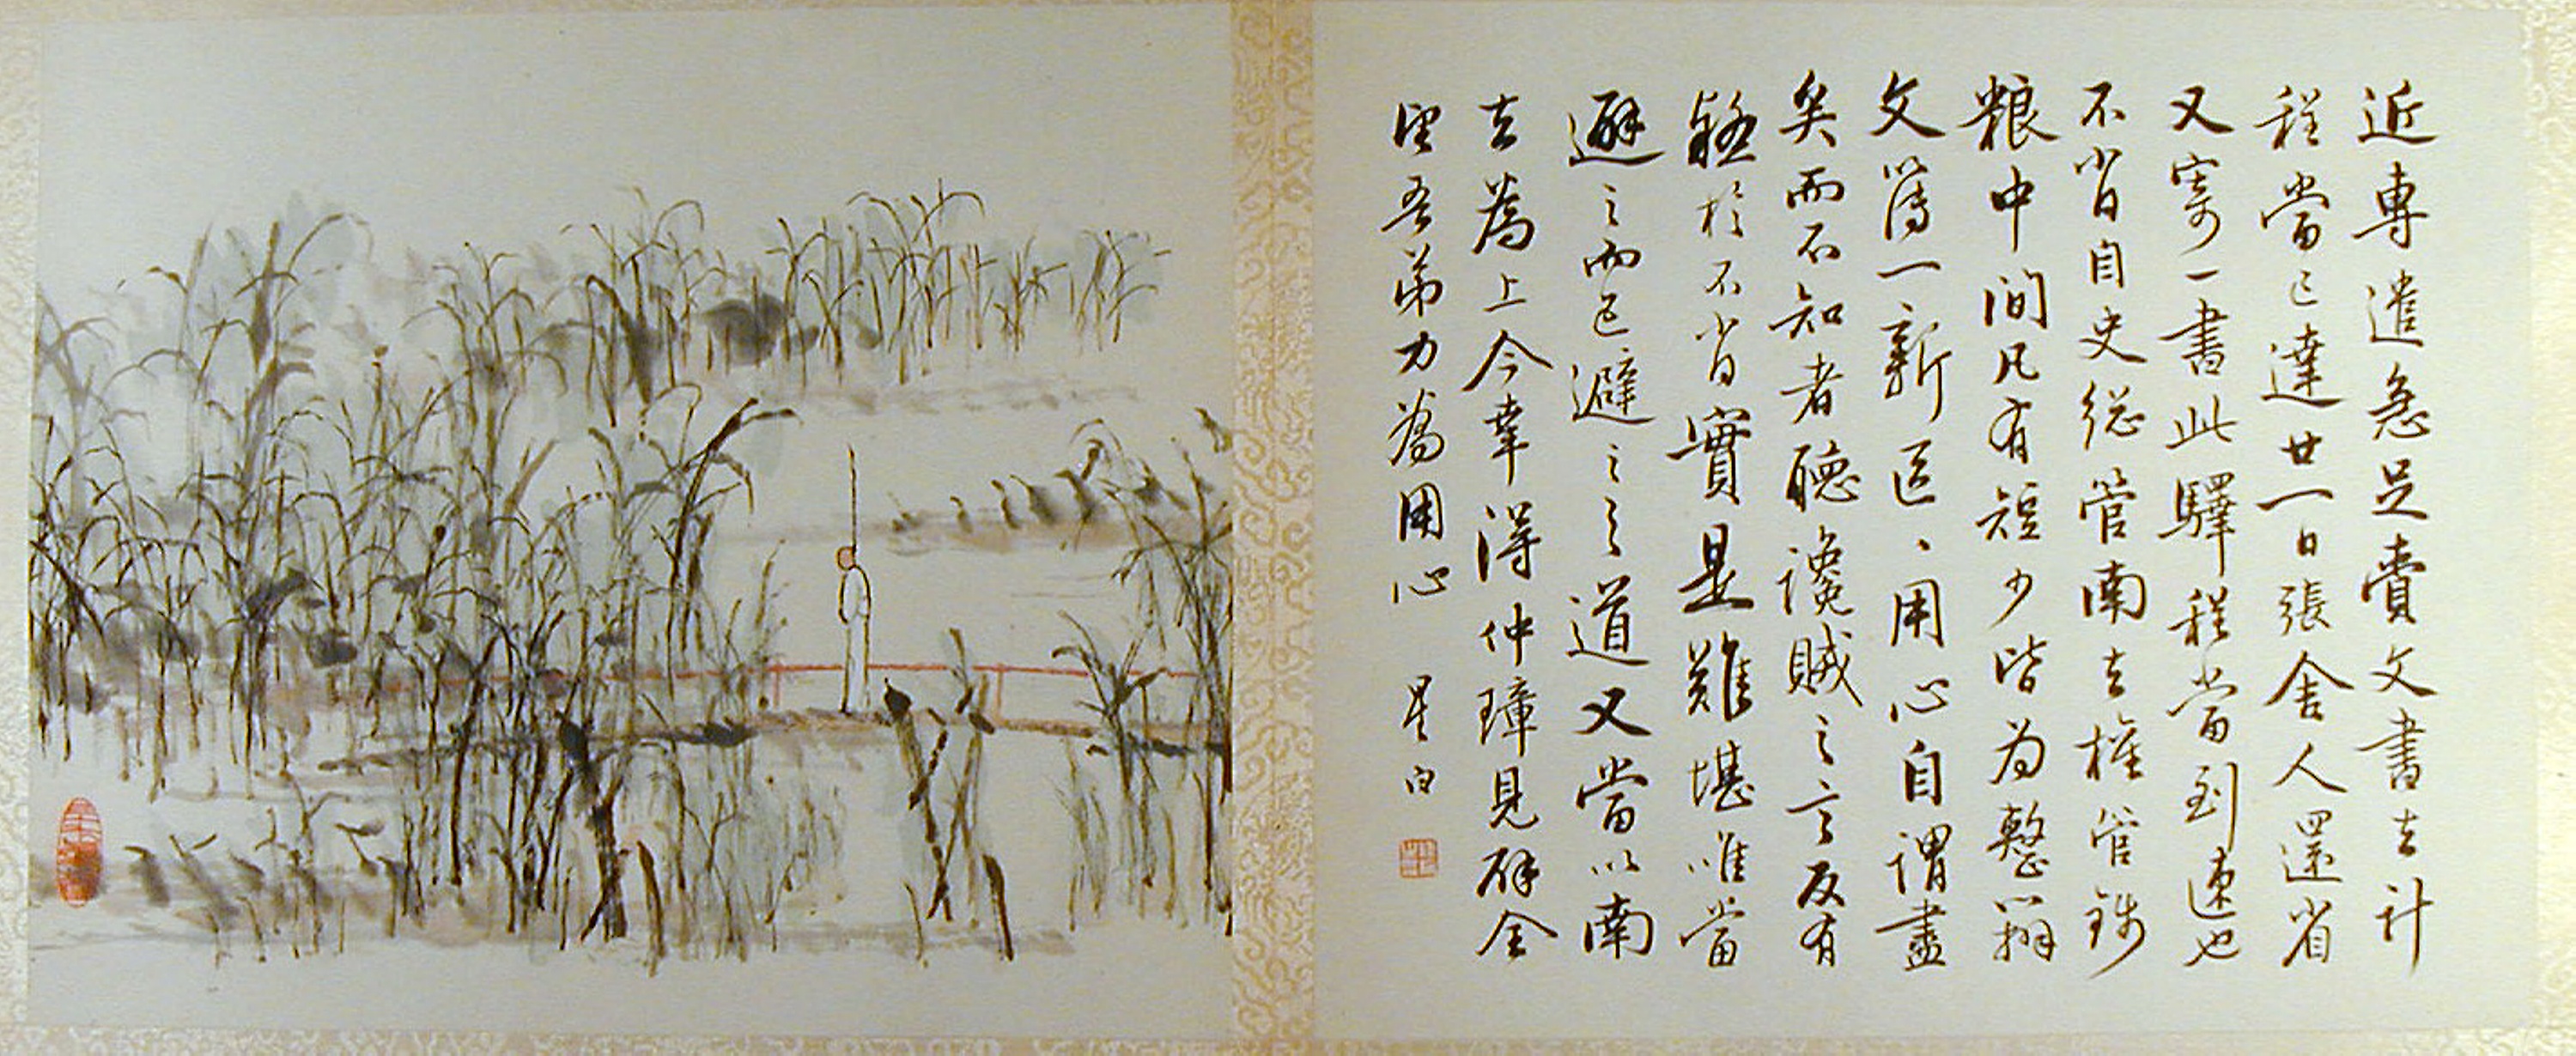 近専遣急足賫文書去計
程當已達廿一日張舍人還省
又寄一書此驛程當到速也
不肖自史総管南去權管錢
粮中間凡有短少皆为整辦
文薄一新區、用心自謂盡
矣而不知者聴讒賊之言反有
於不肖實是難堪唯當
避之而已避之之道又當以南
去為上今幸得仲璋見辟全
望吾弟力為用心 白